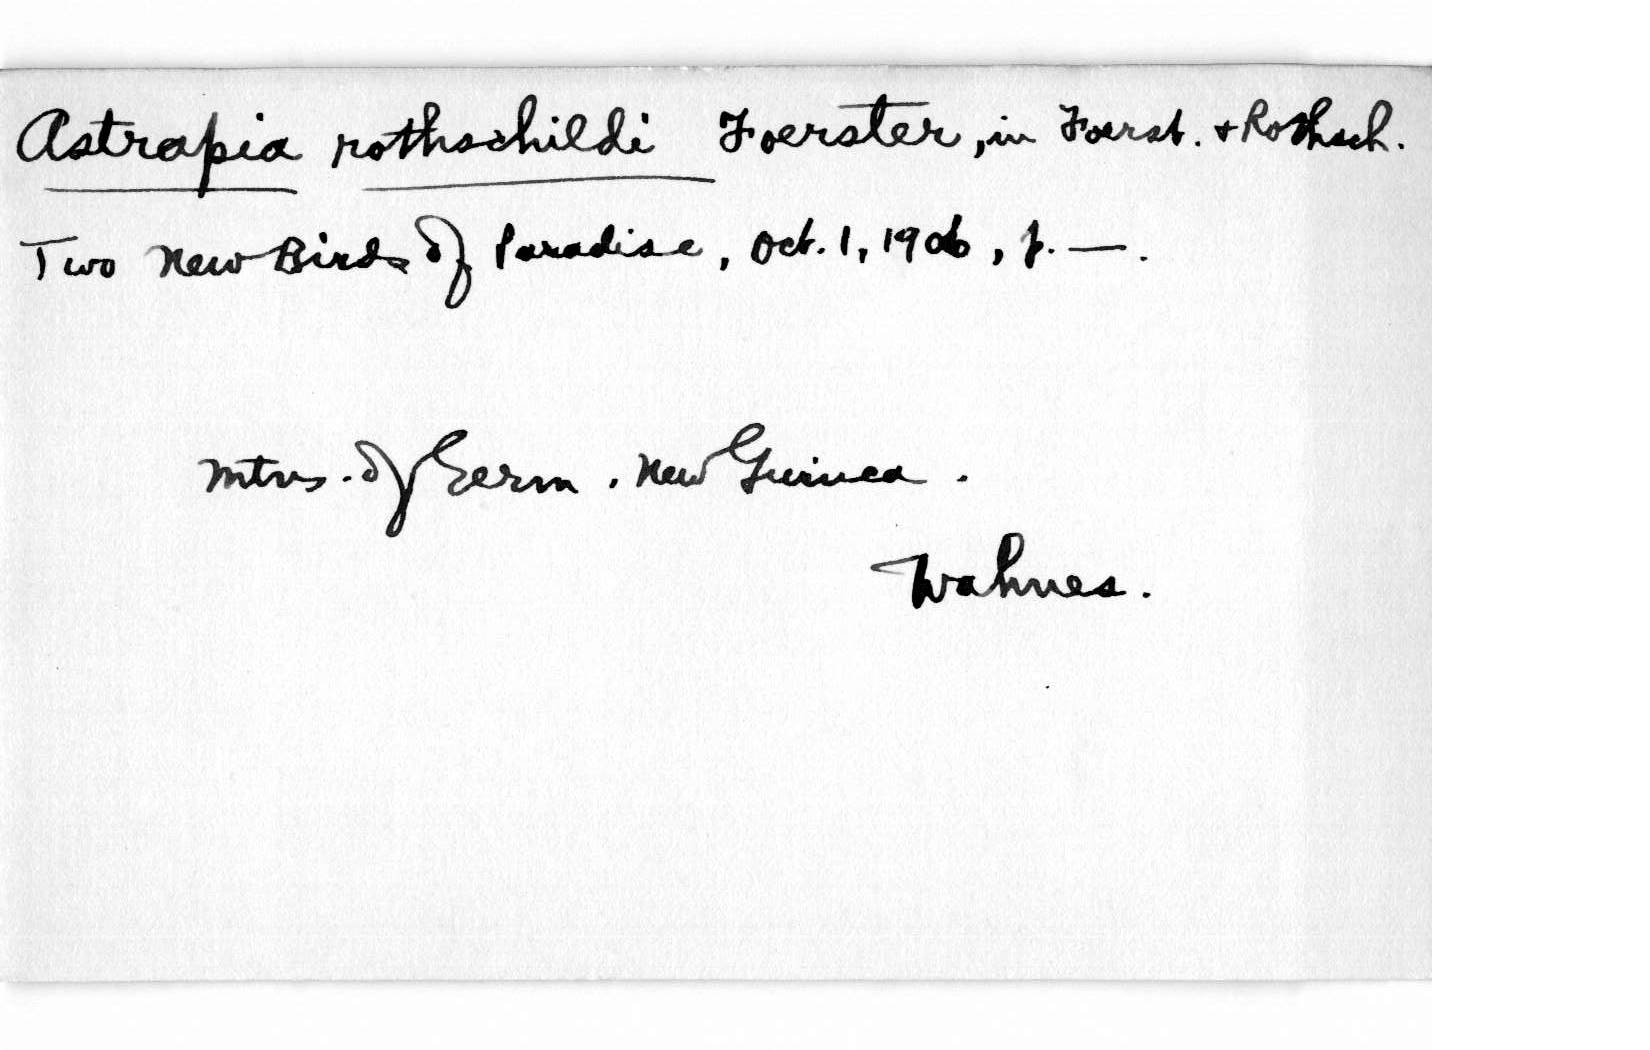 Astrapia rothschildi Foerster, in Foerst. + Rothsch.
Two New Birds of Paradise, Oct. 1, 1906, p. —.
Mtns. of Germ. New Guinea.
Wahnes.